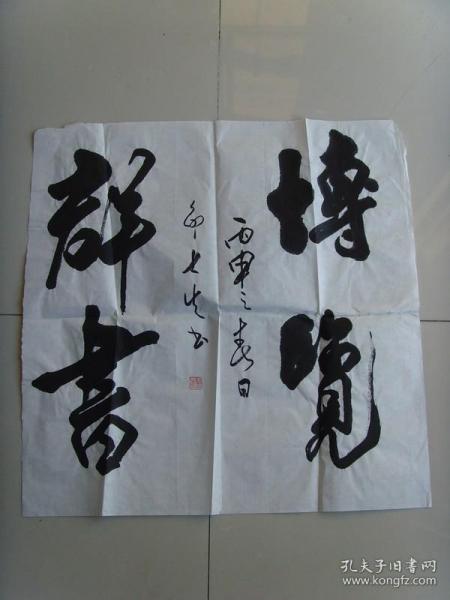 博覽
群書
丙申之春日
书
孔夫子旧书网
www.kongfz.com